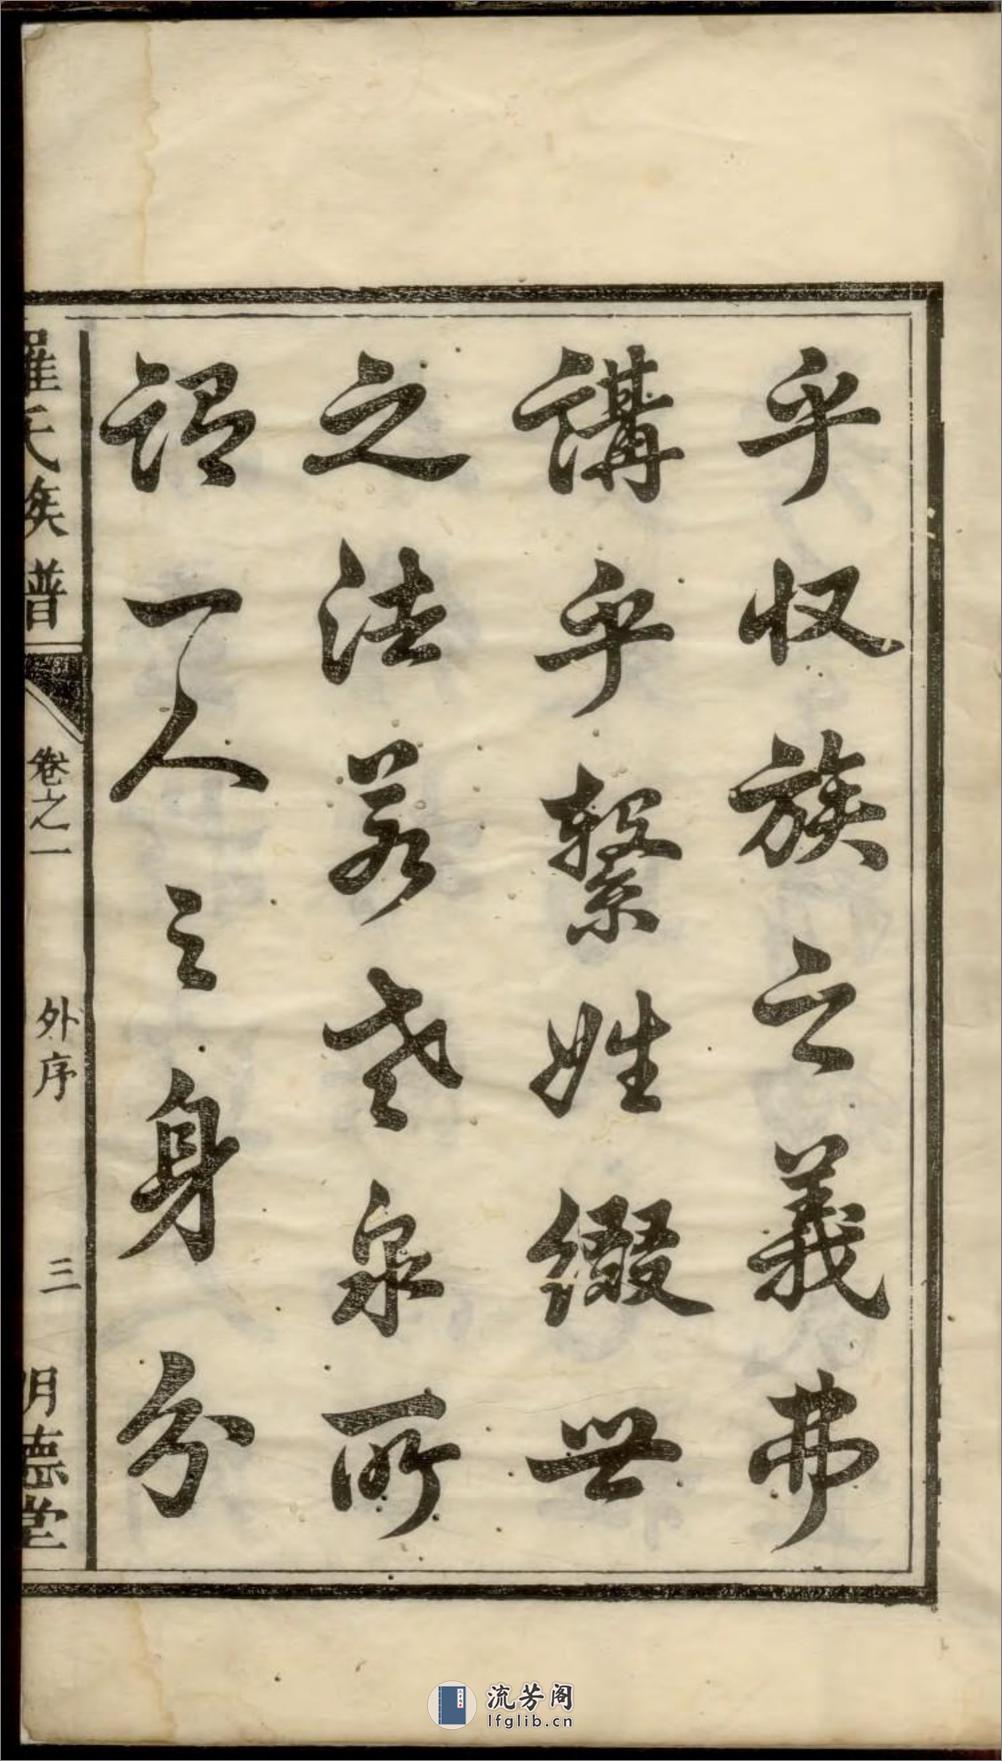 乎收族之義弗
講乎繫姓綴世
之法若老泉所
謂一人之身分
羅氏族譜
卷之一
外序
三
明德堂
流芳阁
lfglib.cn